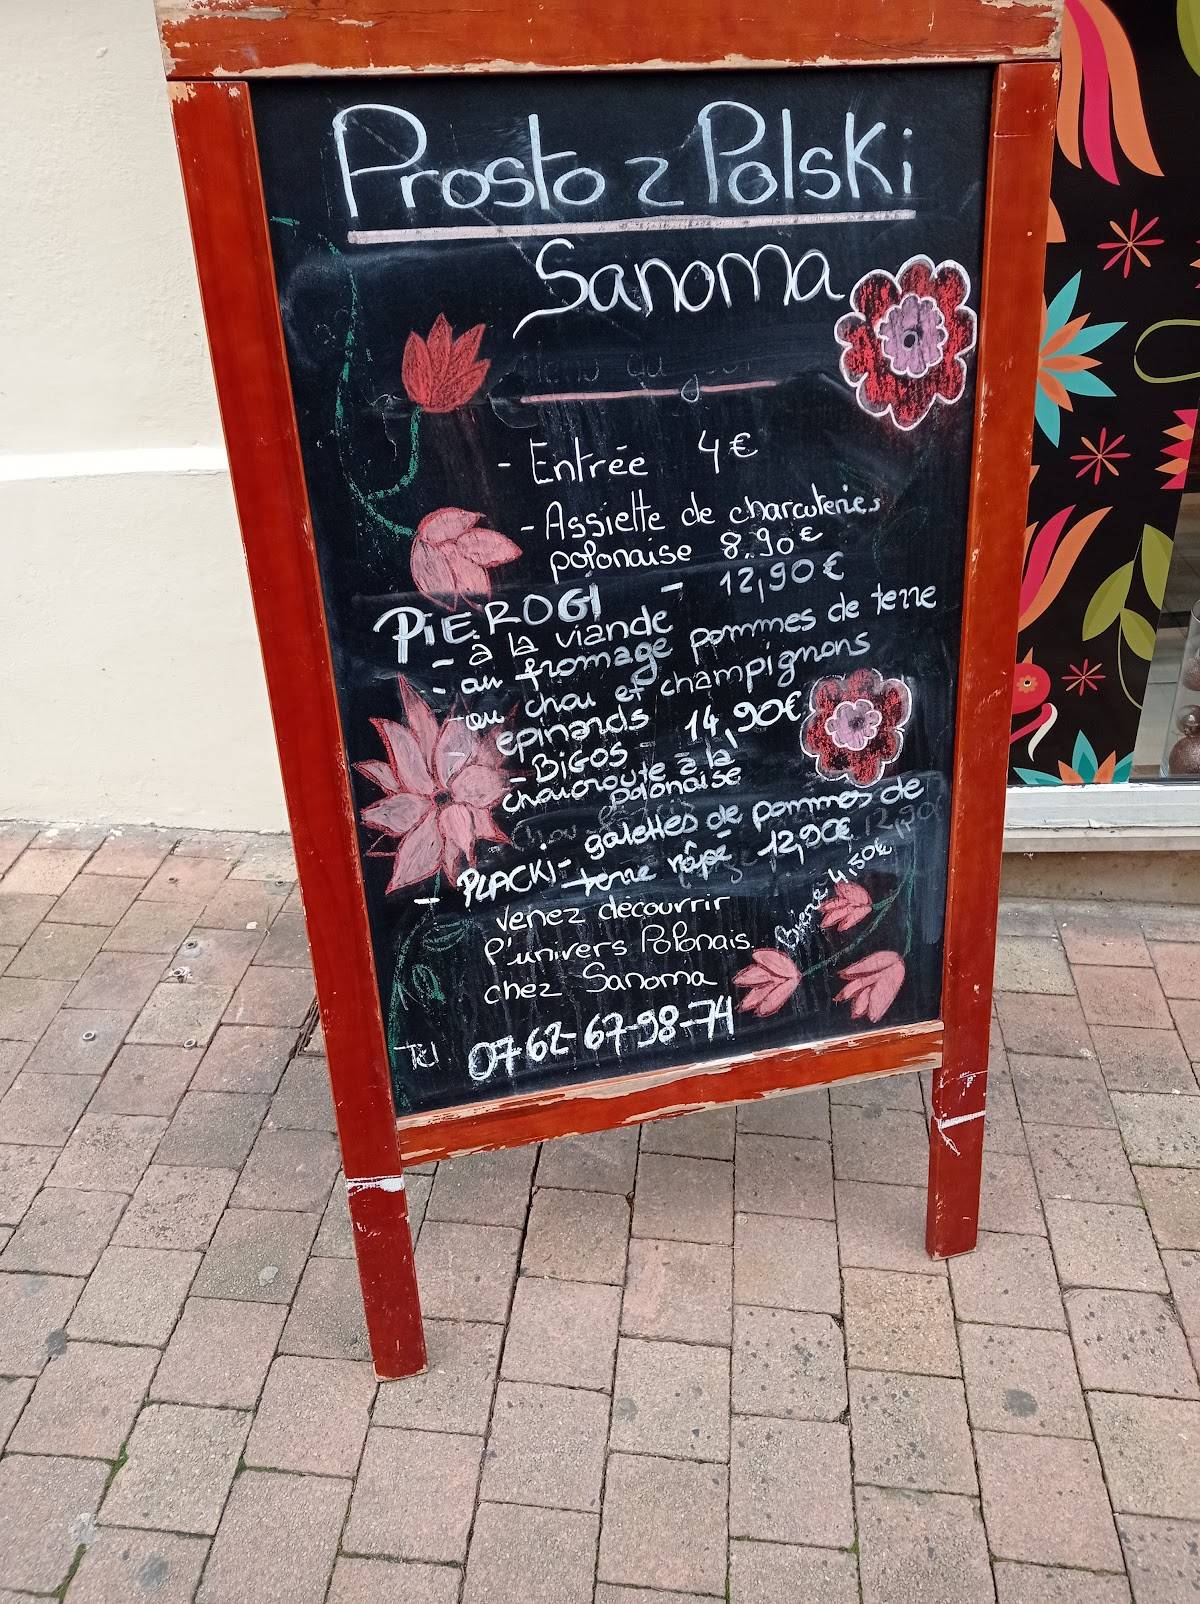 Prosto z Polski
Sanoma
Menu du jour
- Entrée 4€
- Assiette de charcuteries
polonaise 8.90€
PIEROGI - 12,90€
- à la viande
- au fromage pommes de terre
- au chou et champignons
- epinards
- BIGOS - 14,90€
choucroute à la
polonaise
- PLACKI - galettes de pommes de
terre râpé 12,90€ 12,90
Bière 4,50€
venez découvrir
l'univers Polonais.
chez Sanoma
Tél 07-62-67-98-74